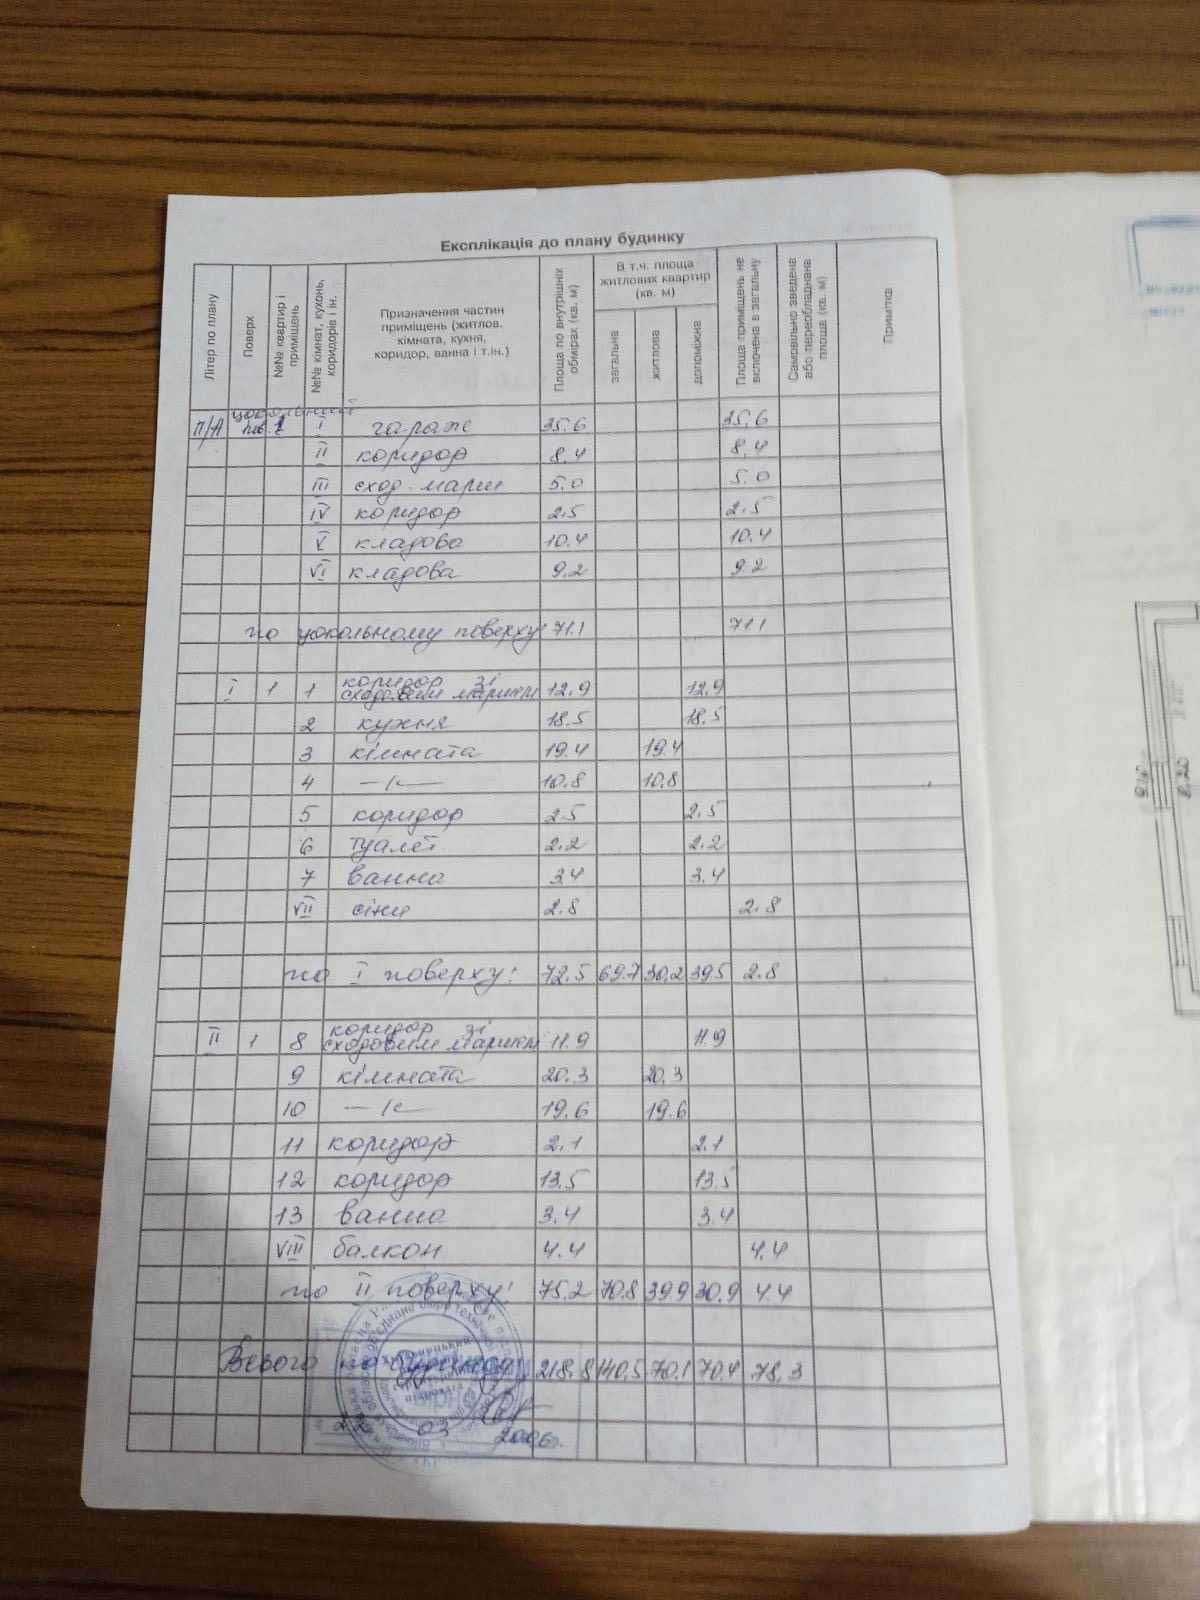 Експлікація до плану будинку
Літер по плану
Поверх
№№ квартир і приміщень
№№ кімнат, кухонь, коридорів і ін.
Призначення частин приміщень (житлов. кімната, кухня, коридор, ванна і т.ін.)
Площа по внутрішніх обмірах (кв. м)
В т.ч. площа житлових квартир (кв. м)
загальна
житлова
допоміжна
Площа приміщень не включена в загальну
Самовільно зведена або переобладнана площа (кв. м)
Примітка
цокольний
П/А пов. 1 I гараж 35,6 35,6
II коридор 8,4 8,4
III сход. марш 5.0 5.0
IV коридор 2.5 2.5
V кладова 10.4 10.4
VI кладова 9.2 9.2
по цокольному поверху 71.1 71.1
I 1 1 коридор зі сходовим маршем 12,9 12,9
2 кухня 18.5 18.5
3 кімната 19.4 19.4
4 —//— 10.8 10.8
5 коридор 2.5 2.5
6 туалет 2.2 2.2
7 ванна 3.4 3.4
VII сіни 2.8 2.8
по I поверху: 72.5 69.7 30,2 39.5 2.8
II 1 8 коридор зі сходовим маршем 11.9 11.9
9 кімната 20.3 20.3
10 —//— 19.6 19.6
11 коридор 2.1 2.1
12 коридор 13.5 13.5
13 ванна 3.4 3.4
VIII балкон 4.4 4.4
по II поверху: 75.2 70.8 39.9 30.9 4.4
Всього по будинку 218.8 140.5 70.1 70.4 78,3
22 03 2006р.
9.10
8.20